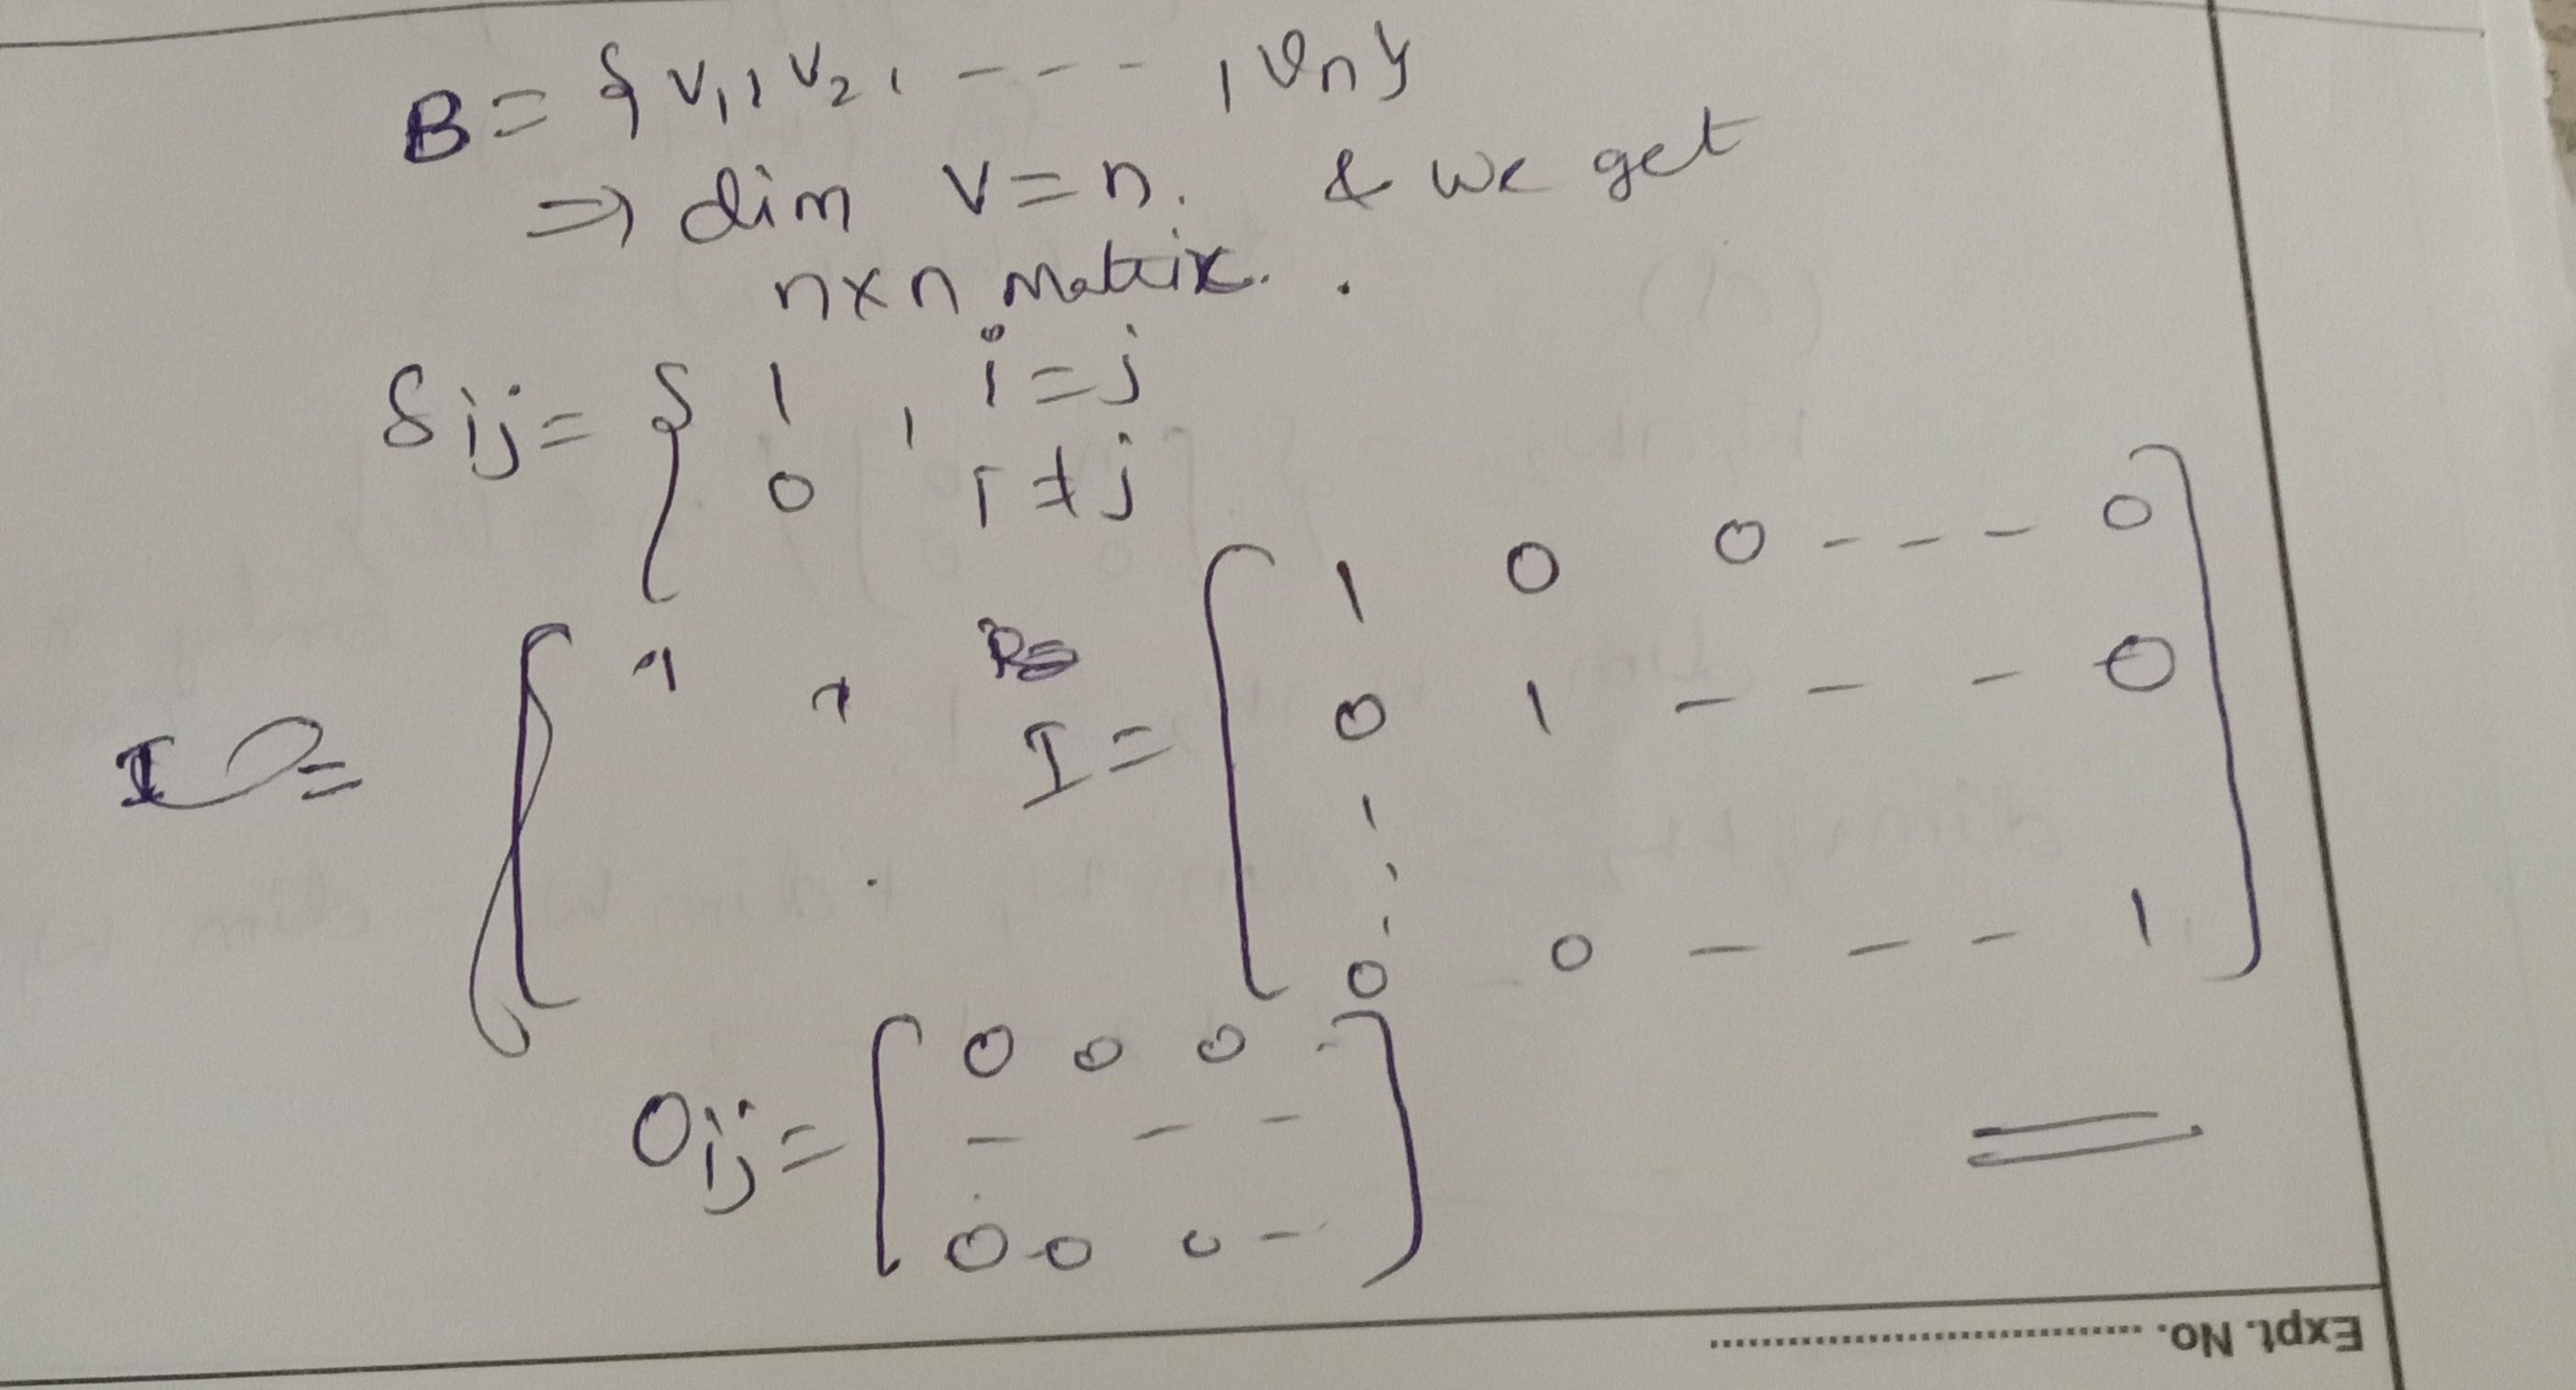 B = { v₁, v₂, - - - , vₙ}
⇒ dim V = n. & we get
n×n matrix.
δij = { 1 , i = j
0 i ≠ j
I =
I = [ 1 0 0 - - - 0
0 1 - - - 0
0 0 - - - 1 ]
Oij = [ 0 0 0
- - -
0 0 0 - ]
Expt. No. ........................